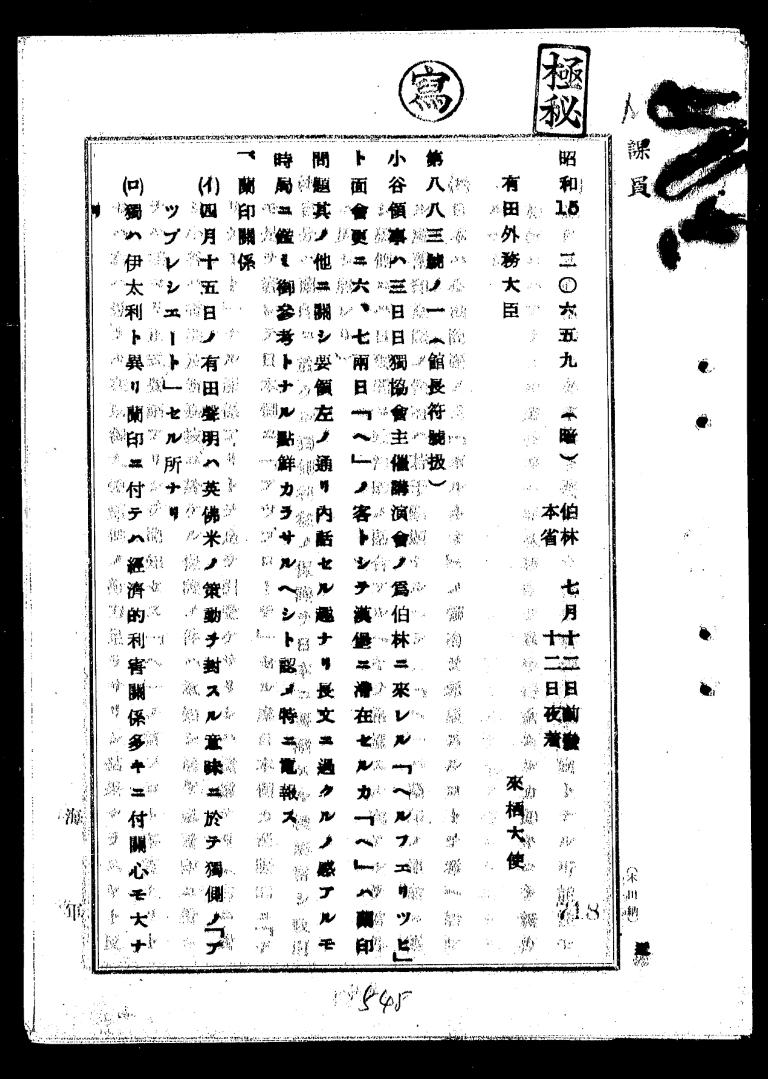 極秘
寫
課員
昭和15 二〇六五九 (暗) 伯林 七月十二日前發
本省 十二日夜着
有田外務大臣 來栖大使
第八八三號ノ一(館長符號扱)
小谷領事ハ三日日獨協會主催講演會ノ爲伯林ニ來レル「ヘルフエリツヒ」
ト面會更ニ六、七兩日「ヘ」ノ客トシテ漢堡ニ滯在セルカ「ヘ」ハ蘭印
問題其ノ他ニ關シ要領左ノ通リ內話セル趣ナリ長文ニ過クルノ感アルモ
時局ニ鑑ミ御參考トナル點鮮カラサルヘシト認メ特ニ電報ス
一、蘭印關係
(イ)四月十五日ノ有田聲明ハ英佛米ノ策動ヲ封スル意味ニ於テ獨側ノ「ア
ツプレシエート」セル所ナリ
(ロ)獨ハ伊太利ト異リ蘭印ニ付テハ經濟的利害關係多キニ付關心モ大ナ
海
軍
718
548